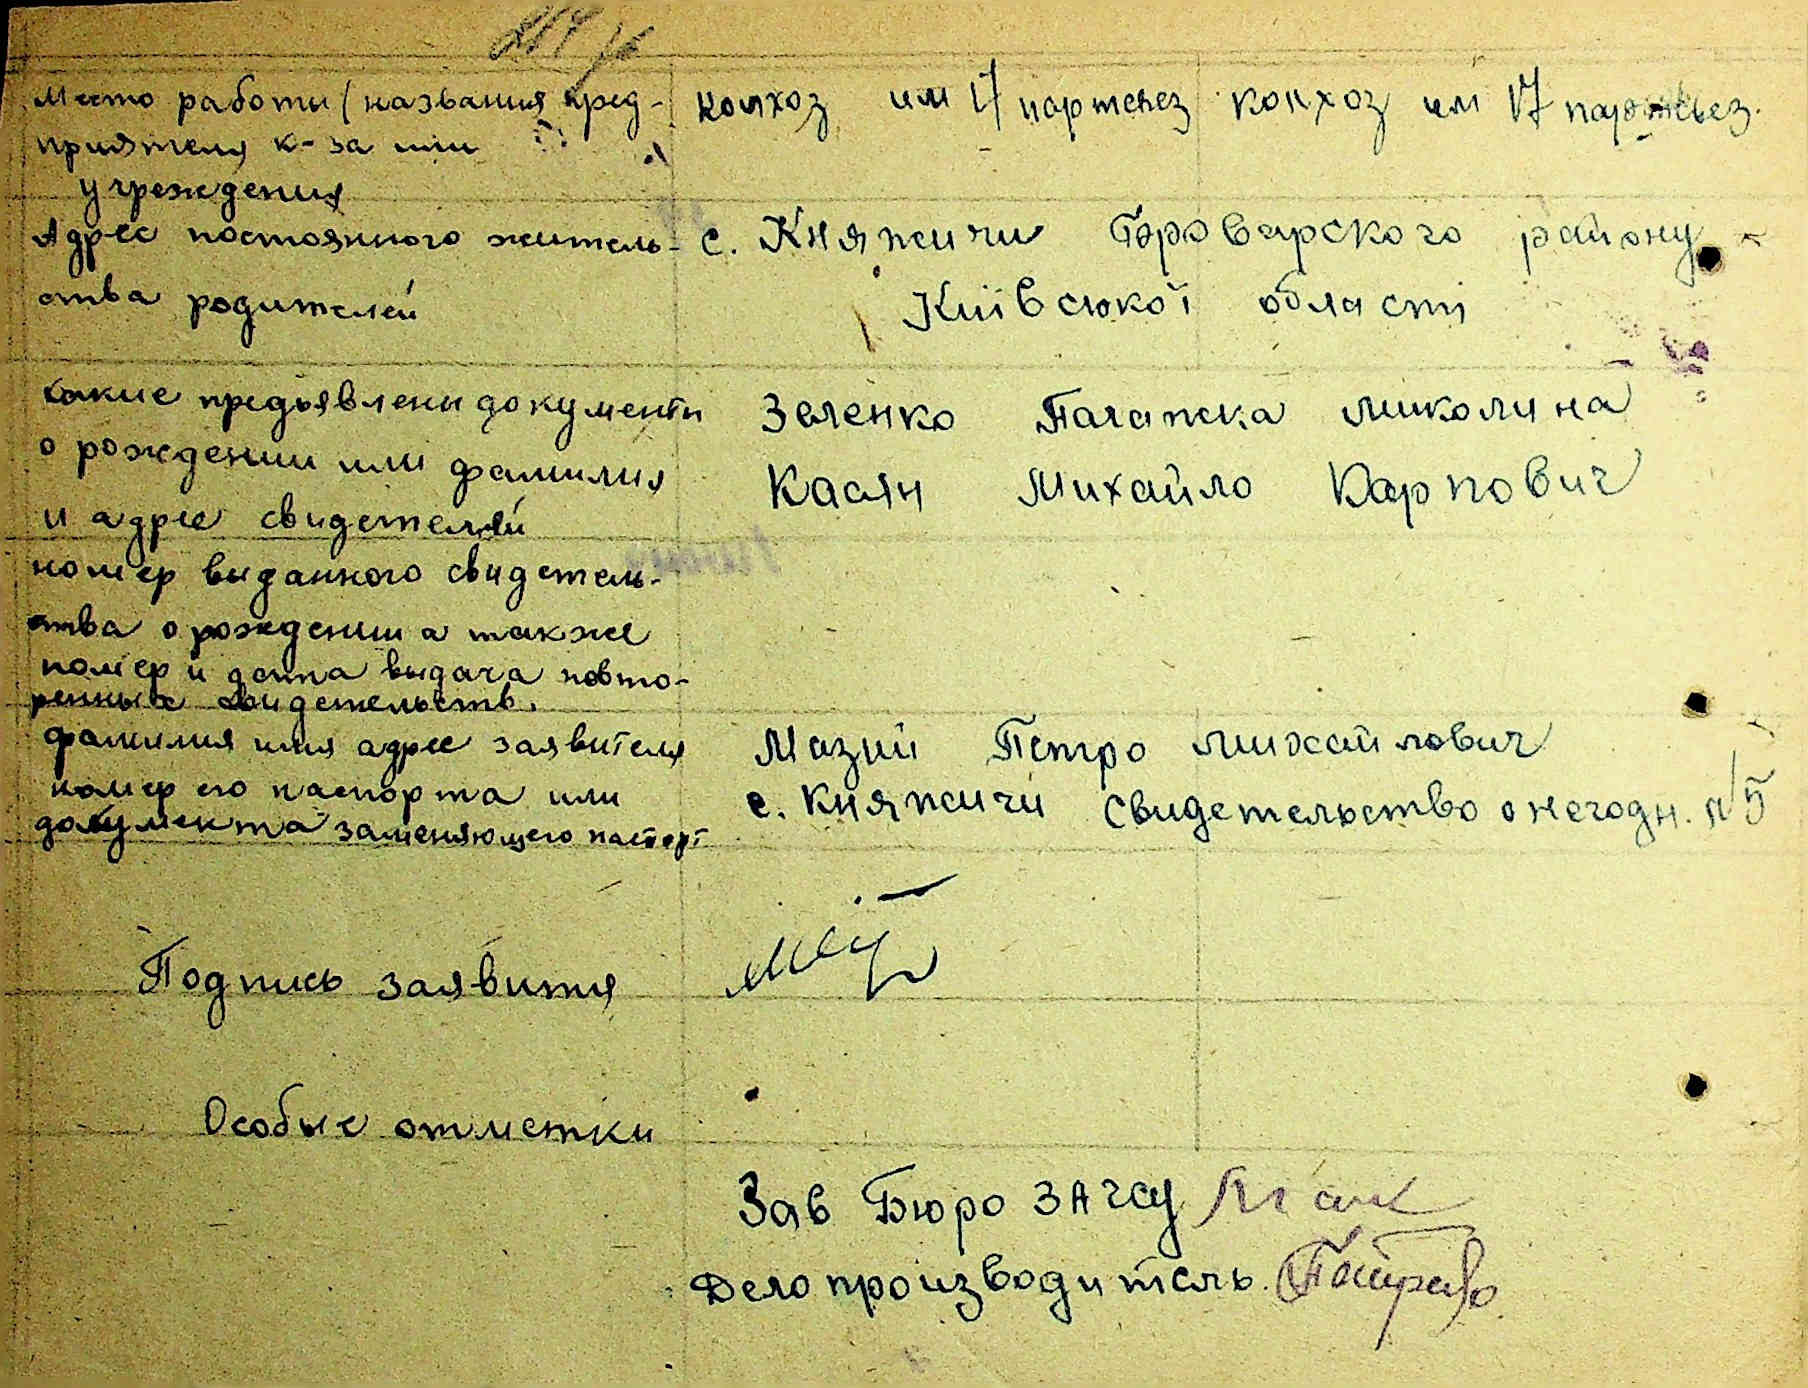 место работы (названия пред-
приятеля к-за или
учреждения
колхоз им 17 партсьез колхоз им 17 партсьез.
Адрес постоянного житель-
ства родителей
с. Княжичи Броварского району
Київської області
какие предьявлены документы
о рождении или фамилия
и адрес свидетелей
Зеленко Палажка миколина
Касян Михайло Карпович
номер выданного свидетель-
ства о рождении а также
номер и дата выдача повто-
ренных свидетельств.
фамилия имя адрес заявителя
номер его паспорта или
документа заменяющего паспорт
Мазий Петро михайлович
с. Княжичи свидетельство о негодн. №5
Подпись заявитя
Особые отметки
Зав Бюро ЗАГСу
Делопроизводитель.